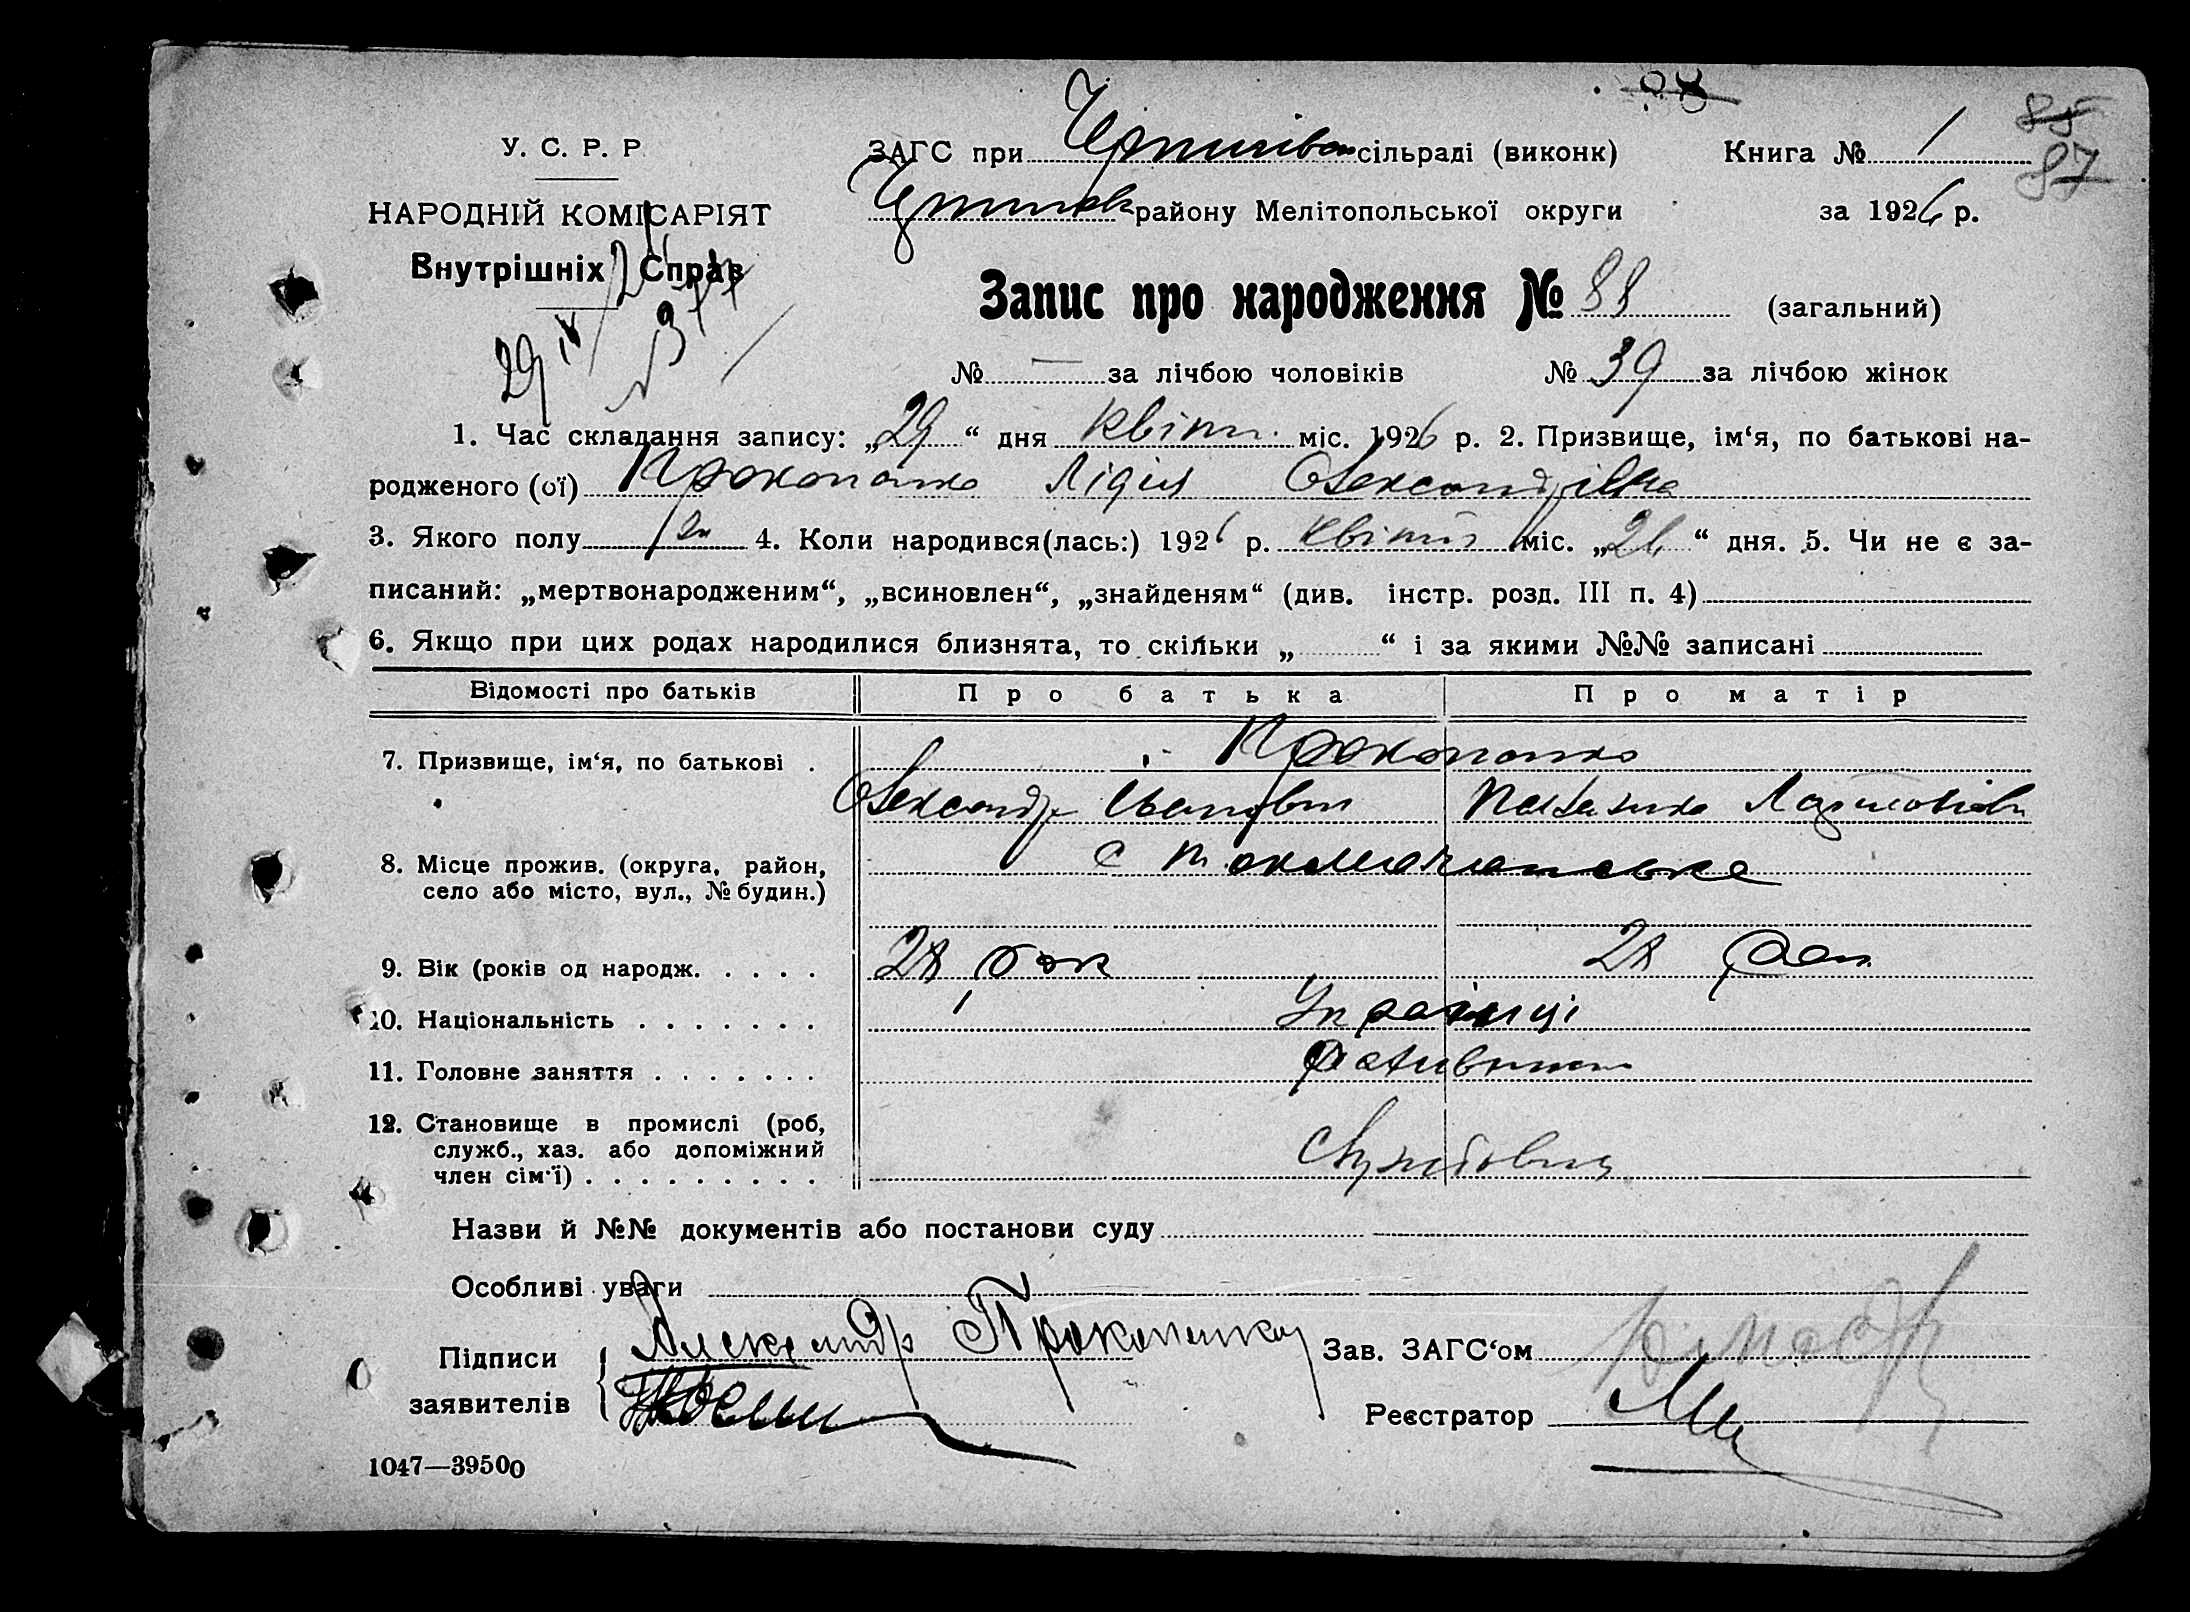 98
85
87
У. С. Р. Р.
НАРОДНІЙ КОМІСАРІЯТ
Внутрішніх Справ
29 IV
ЗАГС при сільраді (виконк) Книга № 1
району Мелітопольської округи за 1926 р.
Запис про народження № 88 (загальний)
№ — за лічбою чоловіків № 39 за лічбою жінок
1. Час складання запису: „29“ дня квітн. міс. 1926 р. 2. Призвище, ім‘я, по батькові на-
родженого (ої) Прокопенко Лідія Олександрівна
3. Якого полу 4. Коли народився(лась:) 1926 р. квітня міс. „26“ дня. 5. Чи не є за-
писаний: „мертвонародженим“, „всиновлен“, „знайденям“ (див. інстр. розд. III п. 4)
6. Якщо при цих родах народилися близнята, то скільки „ “ і за якими №№ записані
Відомості про батьків Про батька Про матір
7. Призвище, ім‘я, по батькові . Прокопенко
Олександр Іванович
8. Місце прожив. (округа, район,
село або місто, вул., № будин.)
с
9. Вік (років од народж. . . . . 28 рок 28 рок
10. Національність . . . . . . . Українці
11. Головне заняття . . . . . . .
12. Становище в промислі (роб,
служб., хаз. або допоміжний
член сім‘ї) . . . . . . . . .
Службовці
Назви й №№ документів або постанови суду
Особливі уваги
Підписи
заявителів
Александр Прокопенко
Зав. ЗАГС‘ом
Реєстратор
1047—39500